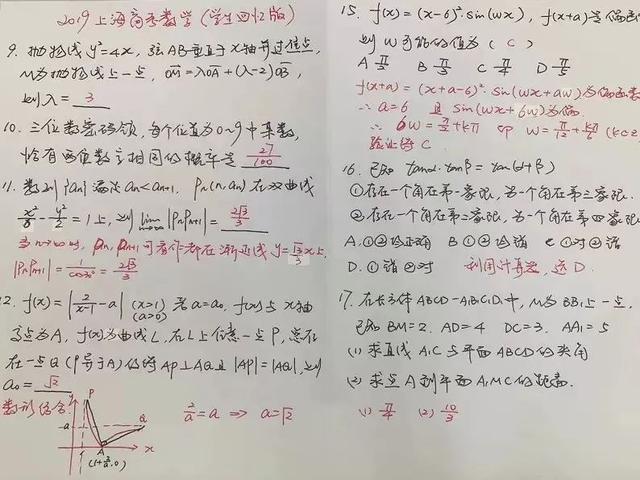 2019上海高考数学(学生回忆版)
9. 抛物线 y²=4x, 弦AB垂直于x轴并过焦点,
M为抛物线上一点, OM=λOA+(λ-2)OB,
则λ= 3
10. 三位数密码锁, 每个位置为0~9中某数,
恰有两位数字相同的概率是 27/100
11. 数列{an}满足an<an+1, Pn(n,an)在双曲线
x²/6-y²/2=1上, 则lim n→∞|PnPn+1|= 2√3/3
当n→∞时, Pn, Pn+1可看作都在渐近线y=√3/3x上.
|PnPn+1|=1/cos30°=2√3/3
12. f(x)=|2/(x-1)-a| (x>1) (a>0) 若a=a0, f(x)与x轴
交点为A, f(x)为曲线L, 在L上任意一点P, 总存
在一点Q(P异于A)的时AP⊥AQ且|AP|=|AQ|, 则
a0= √2
数形结合:
P
a
Q
A
1
x
(1+2/a,0)
2/a=a ⇒ a=√2
15. f(x)=(x-6)²·sin(ωx), f(x+a)是偶函数
则ω可能的值为(C)
A π/2 B π/3 C π/4 D π/5
f(x+a)=(x+a-6)²·sin(ωx+aω)为偶函数
∴a=6 且sin(ωx+6ω)为偶.
∴6ω=π/2+kπ 即 ω=π/12+kπ/6 (k∈
验证得C
16. 已知 tanα·tanβ=tan(α+β)
①存在一个角在第一象限, 另一个角在第三象限.
②存在一个角在第二象限, 另一个角在第四象限
A. ①②均正确 B ①②均错 C ①对②错
D. ①错②对 利用计算器, 选D.
17. 在长方体ABCD-A1B1C1D1中, M为BB1上一点,
已知BM=2. AD=4 DC=3. AA1=5
(1) 求直线A1C与平面ABCD的夹角
(2) 求点A到平面A1MC的距离.
(1) π/4 (2) 10/3